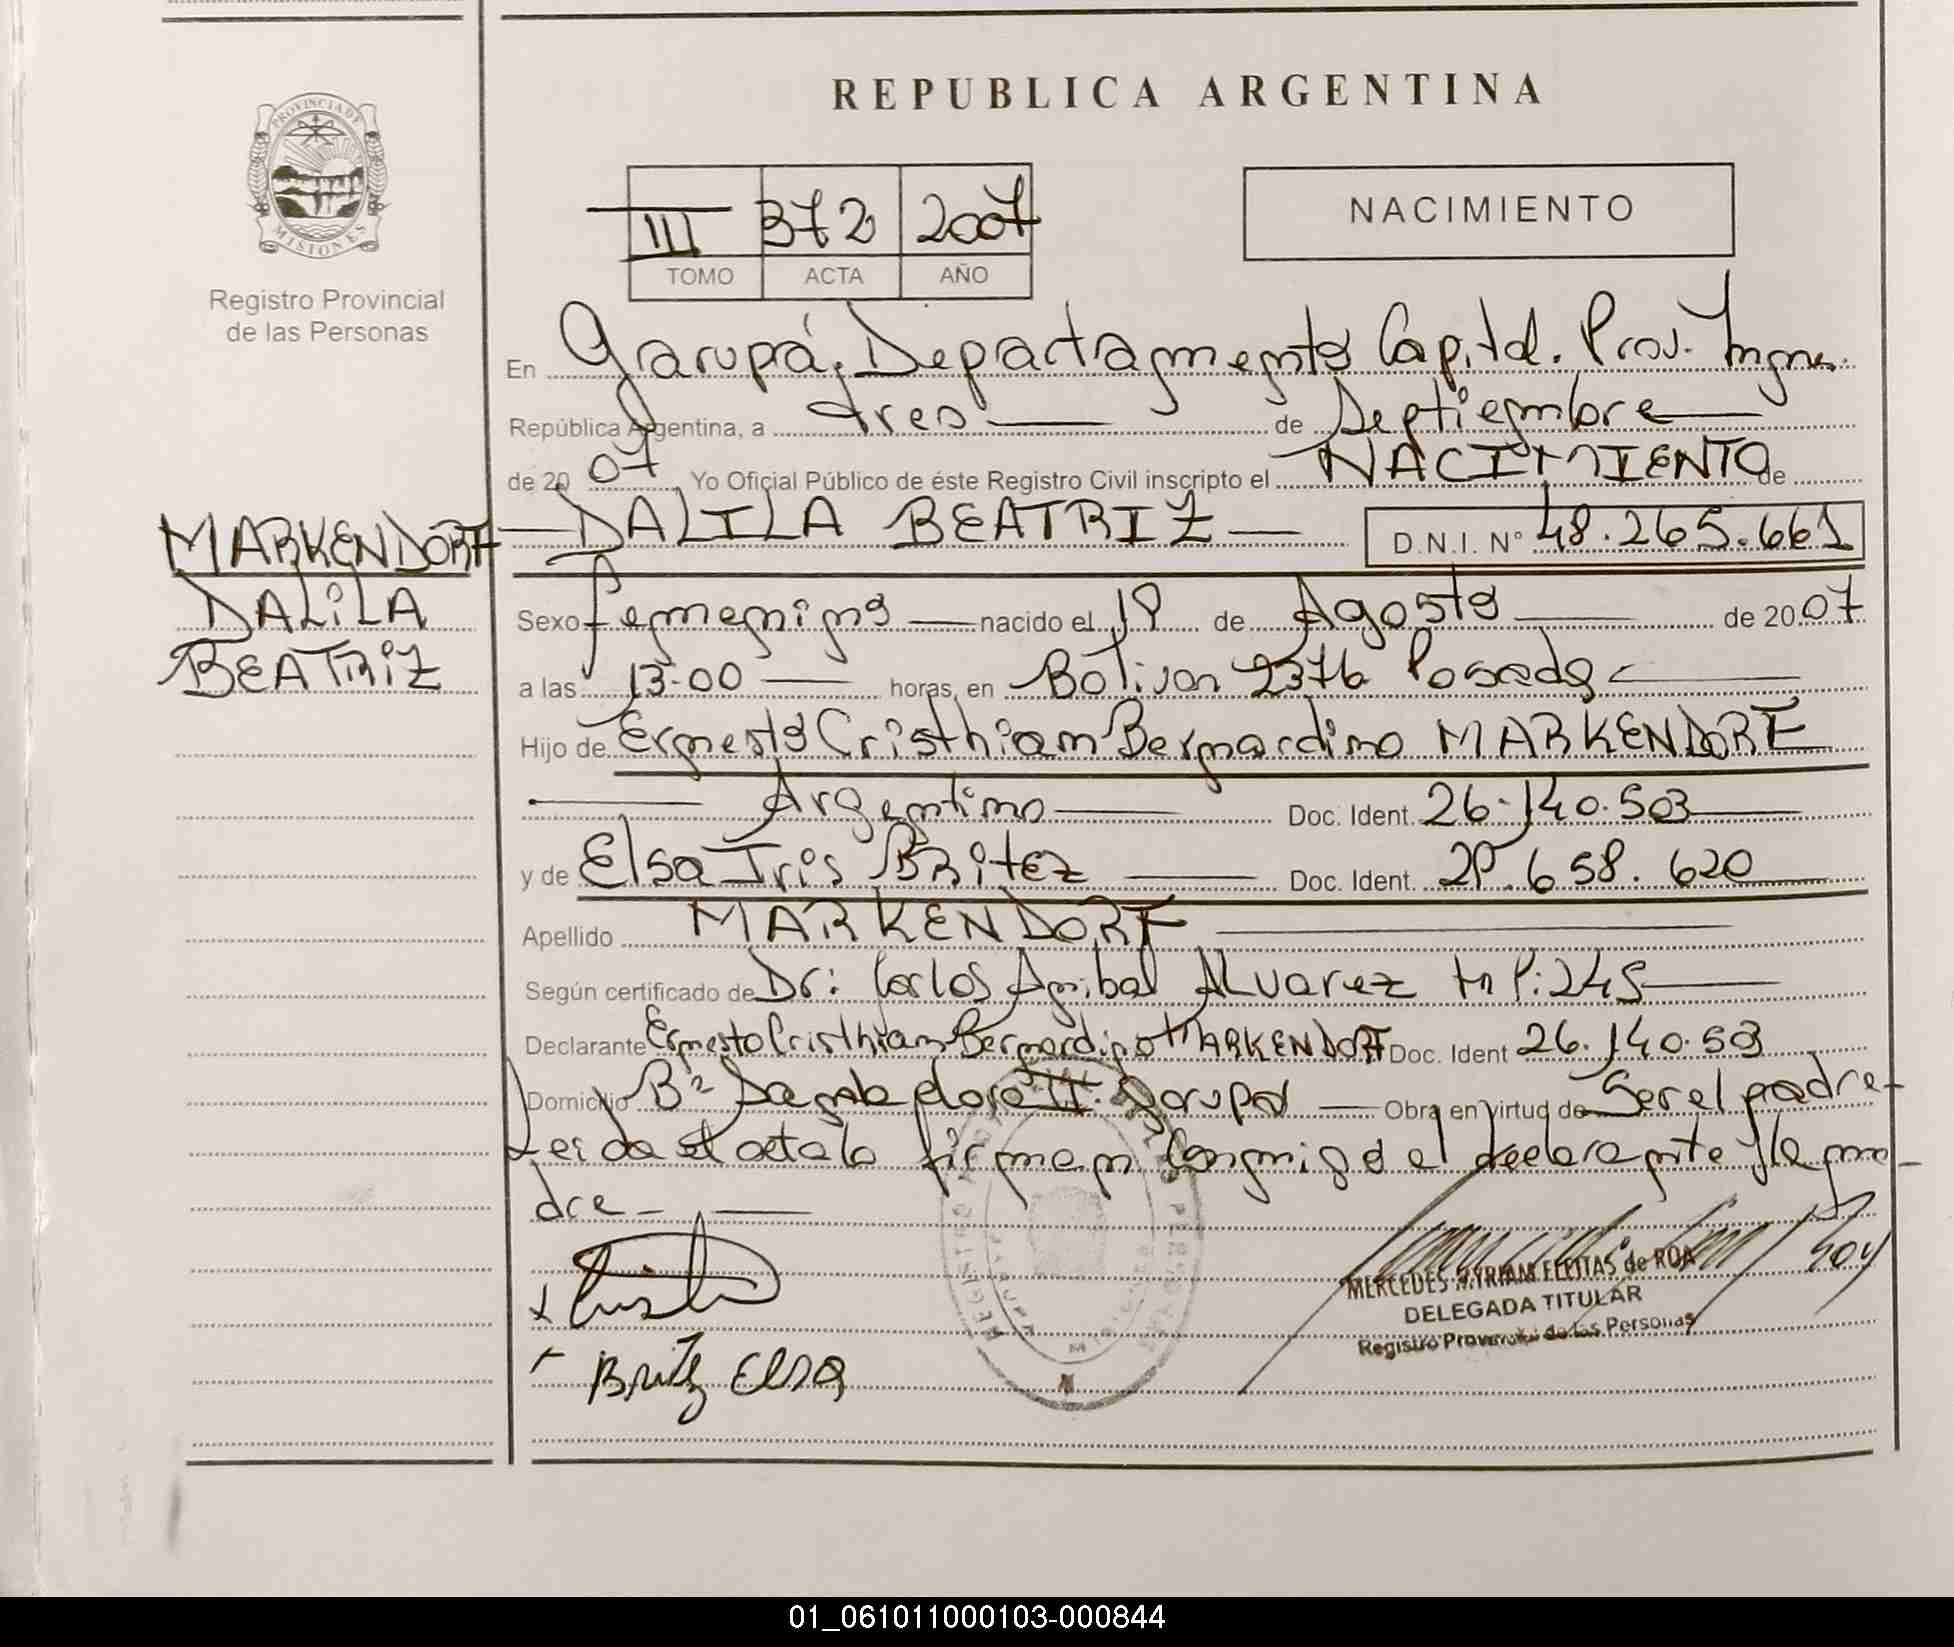 REPUBLICA ARGENTINA
PROVINCIA DE
MISIONES
Registro Provincial
de las Personas
III 372 2007
TOMO ACTA AÑO
NACIMIENTO
En Garupá, Departamento Capital. Prov. Mnes.
República Argentina, a tres de Septiembre
de 2007 Yo Oficial Público de éste Registro Civil inscripto el NACIMIENTO de
DALILA BEATRIZ D.N.I. N° 48.265.661
MARKENDORF
DALILA
BEATRIZ
Sexo femenino nacido el de Agosto de 2007
a las 13.00 horas, en Bolivar 2376 Posadas
Hijo de Ernesto Cristhiam Bernardino MARKENDORF
Argentino Doc. Ident. 26.140.503
y de Elsa Iris BRitez Doc. Ident. 658.620
Apellido MARKENDORF
Según certificado de Dr: Carlos Anibal ALvarez M P: 245
Declarante Ernesto Cristhiam Bernardino MARKENDORF Doc. Ident 26.140.503
Domicilio B° II. Garupá Obra en virtud de Ser el padre
Leida el acta la firman conmigo el declarante y la ma-
dre -
Britez Elsa
MERCEDES MYRIAM FLEITAS de ROA
DELEGADA TITULAR
Registro Provincial de las Personas
01_061011000103-000844